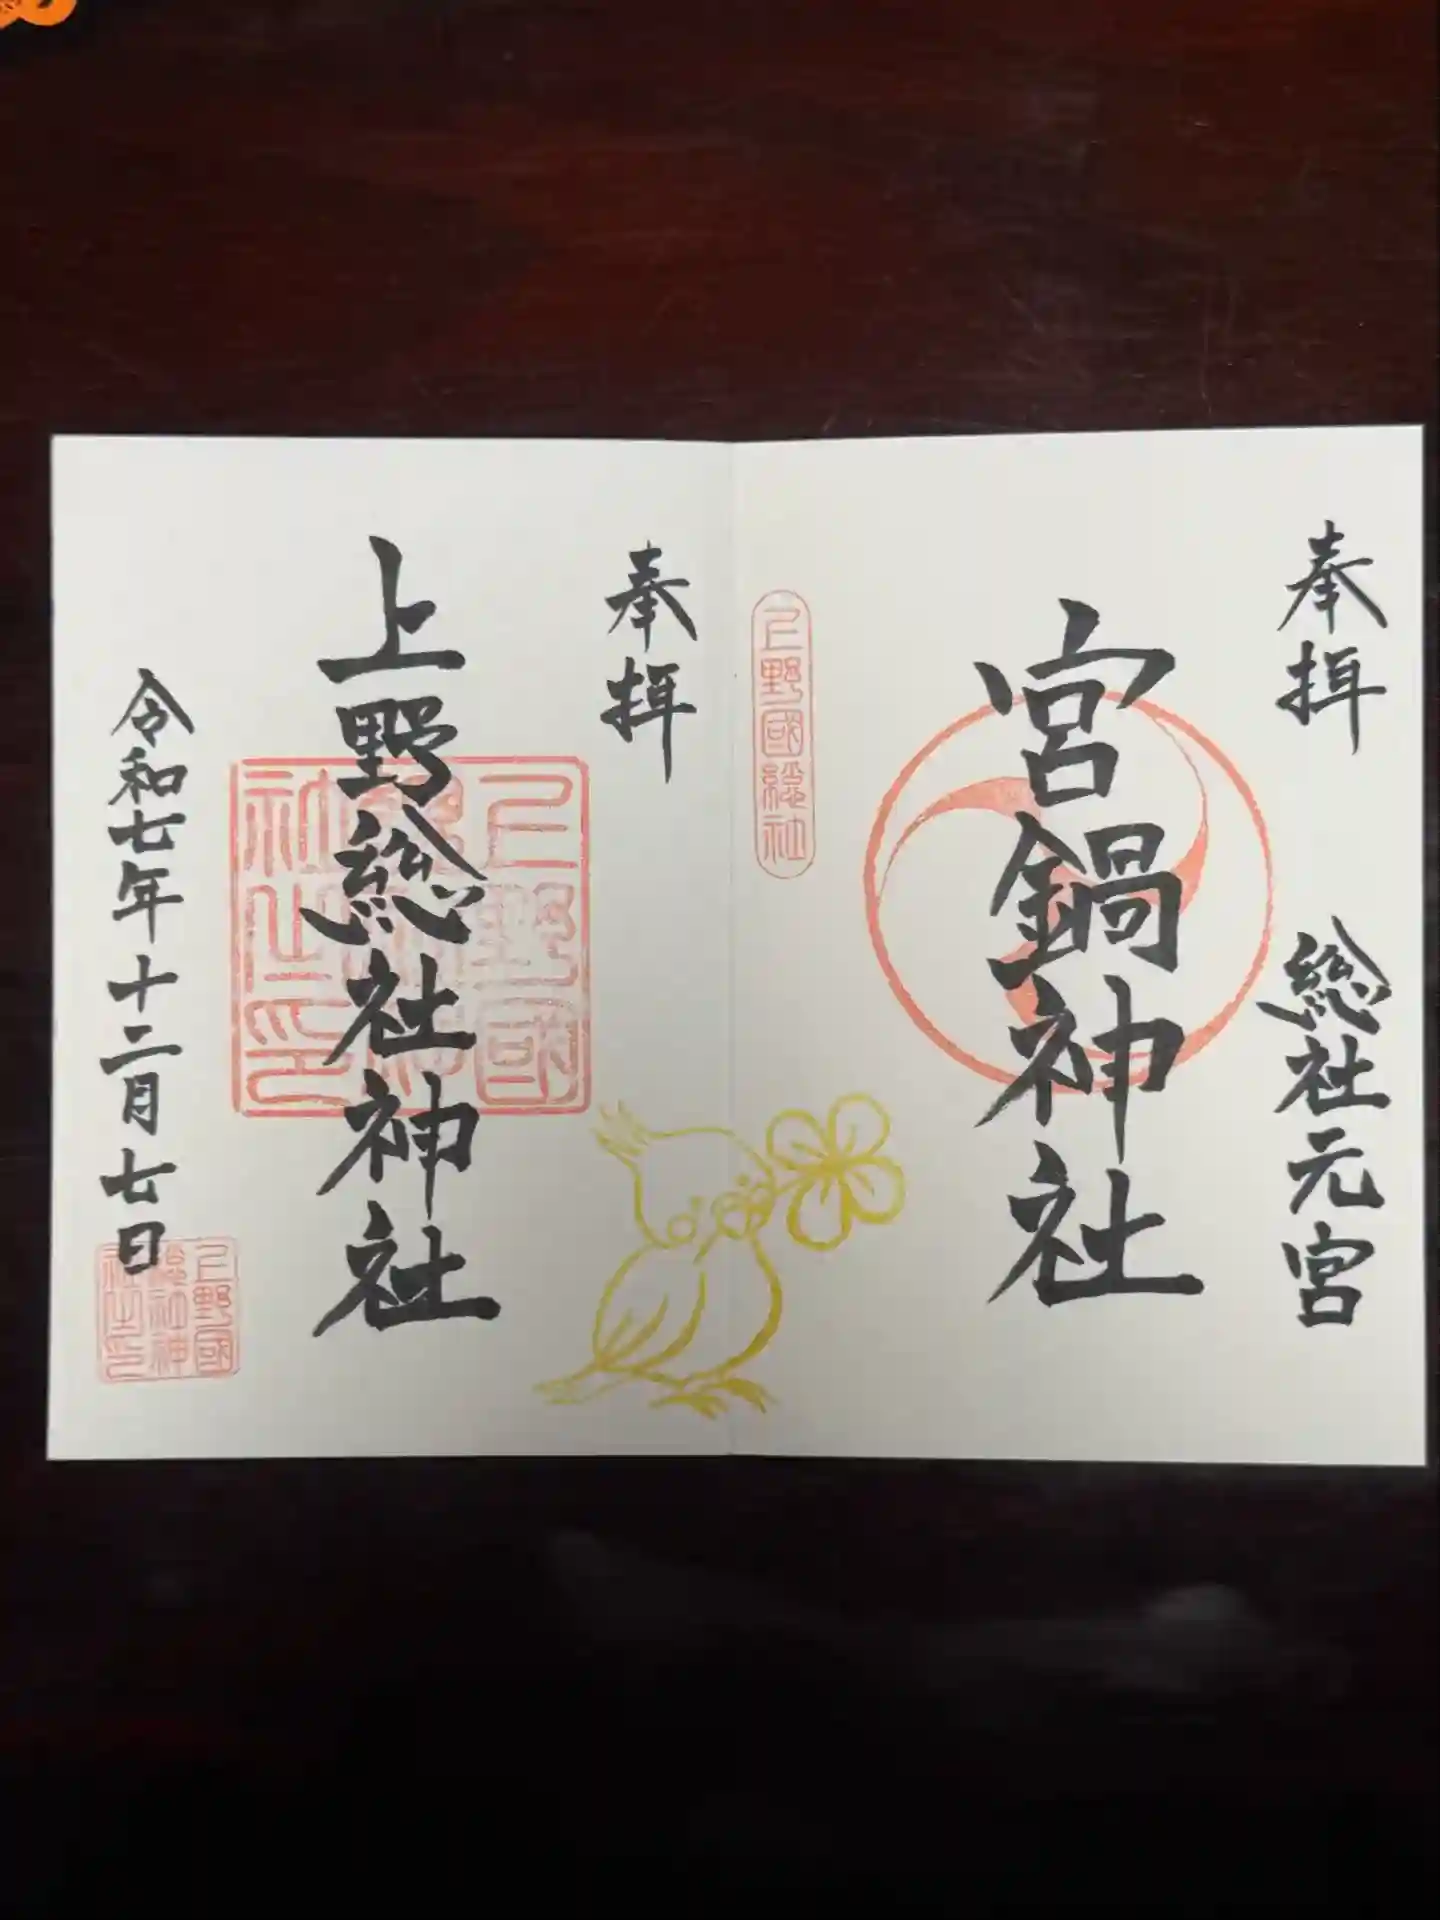 奉拝
総社元宮
宮鍋神社
上野國総社
奉拝
上野総社神社
上野國総社神社之印
令和七年十二月七日
上野國総社神社之印